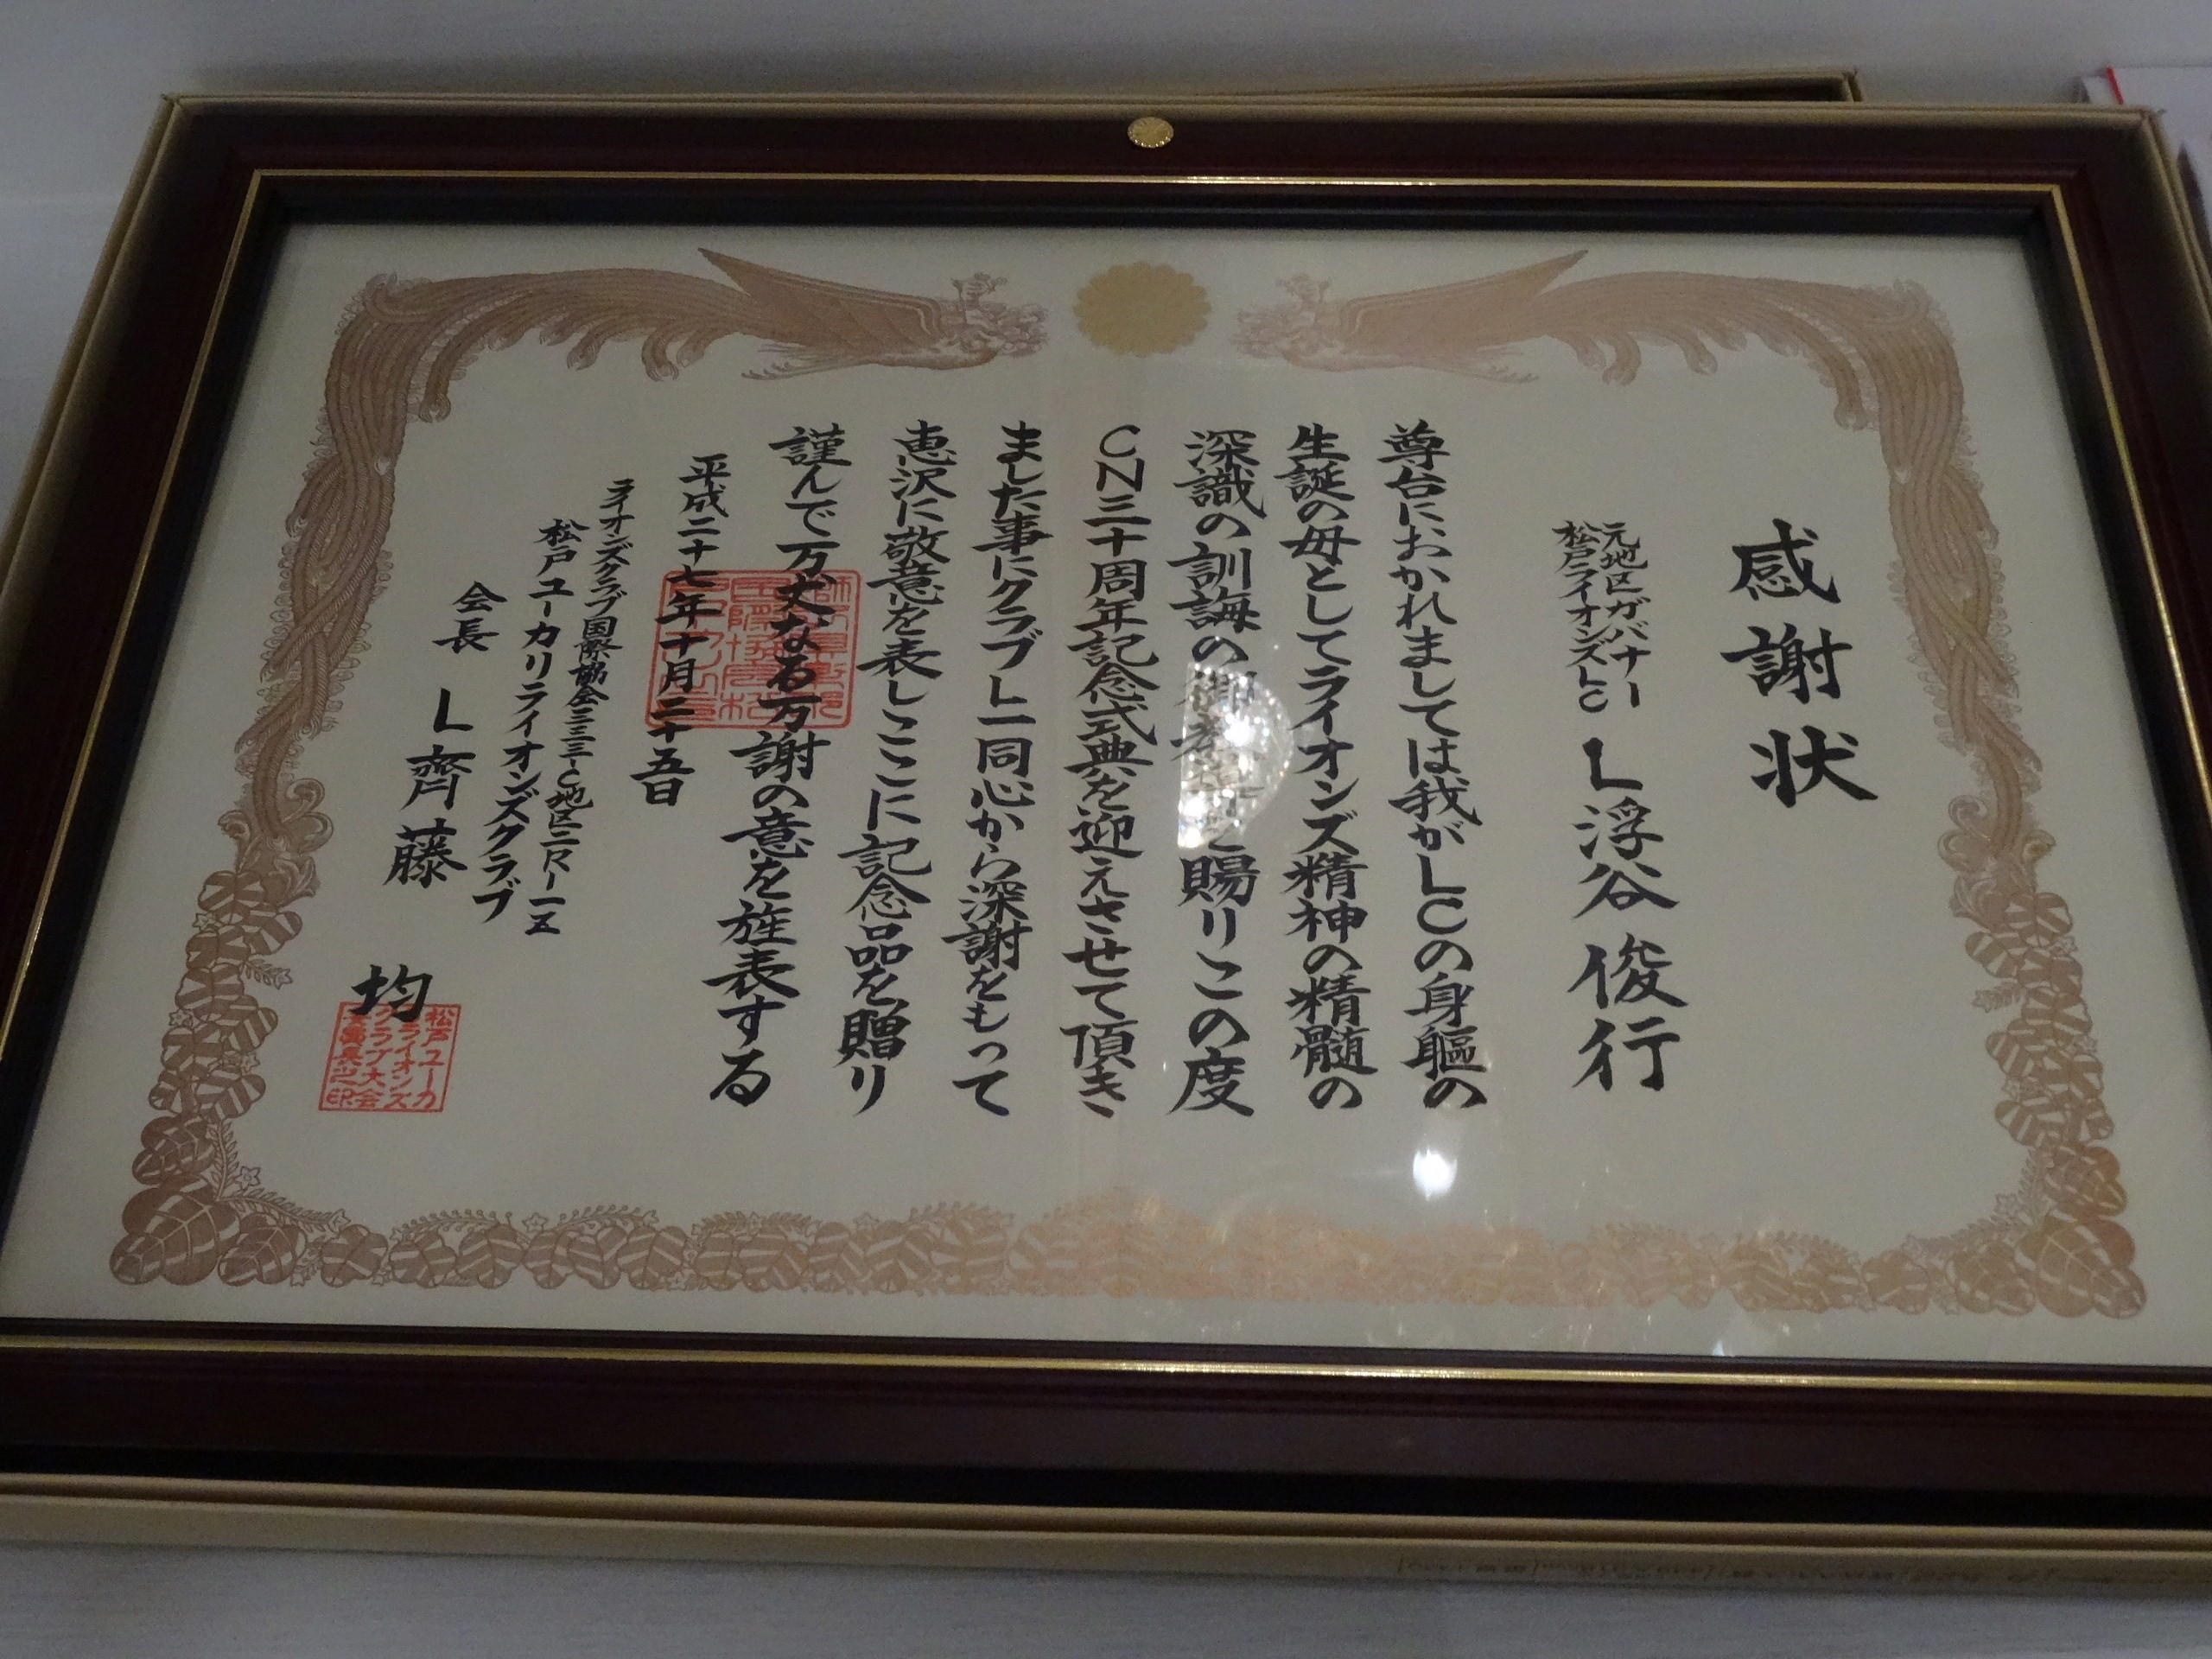 感謝状
元地区ガバナー
松戸ライオンズLC
L浮谷俊行
尊台におかれましては我がLCの身軀の
生誕の母としてライオンズ精神の精髄の
深識の訓誨の御 賜りこの度
CN三十周年記念式典を迎えさせて頂き
ました事にクラブL一同心から深謝をもって
恵沢に敬意を表しここに記念品を贈り
謹んで万丈なる万謝の意を旌表する
平成二十七年十月二十五日
ライオンズクラブ国際協会三三三-C地区二R-一Z
松戸ユーカリライオンズクラブ
会長 L齊藤 均
松戸ユーカ
リライオンズ
クラブ大会
之印